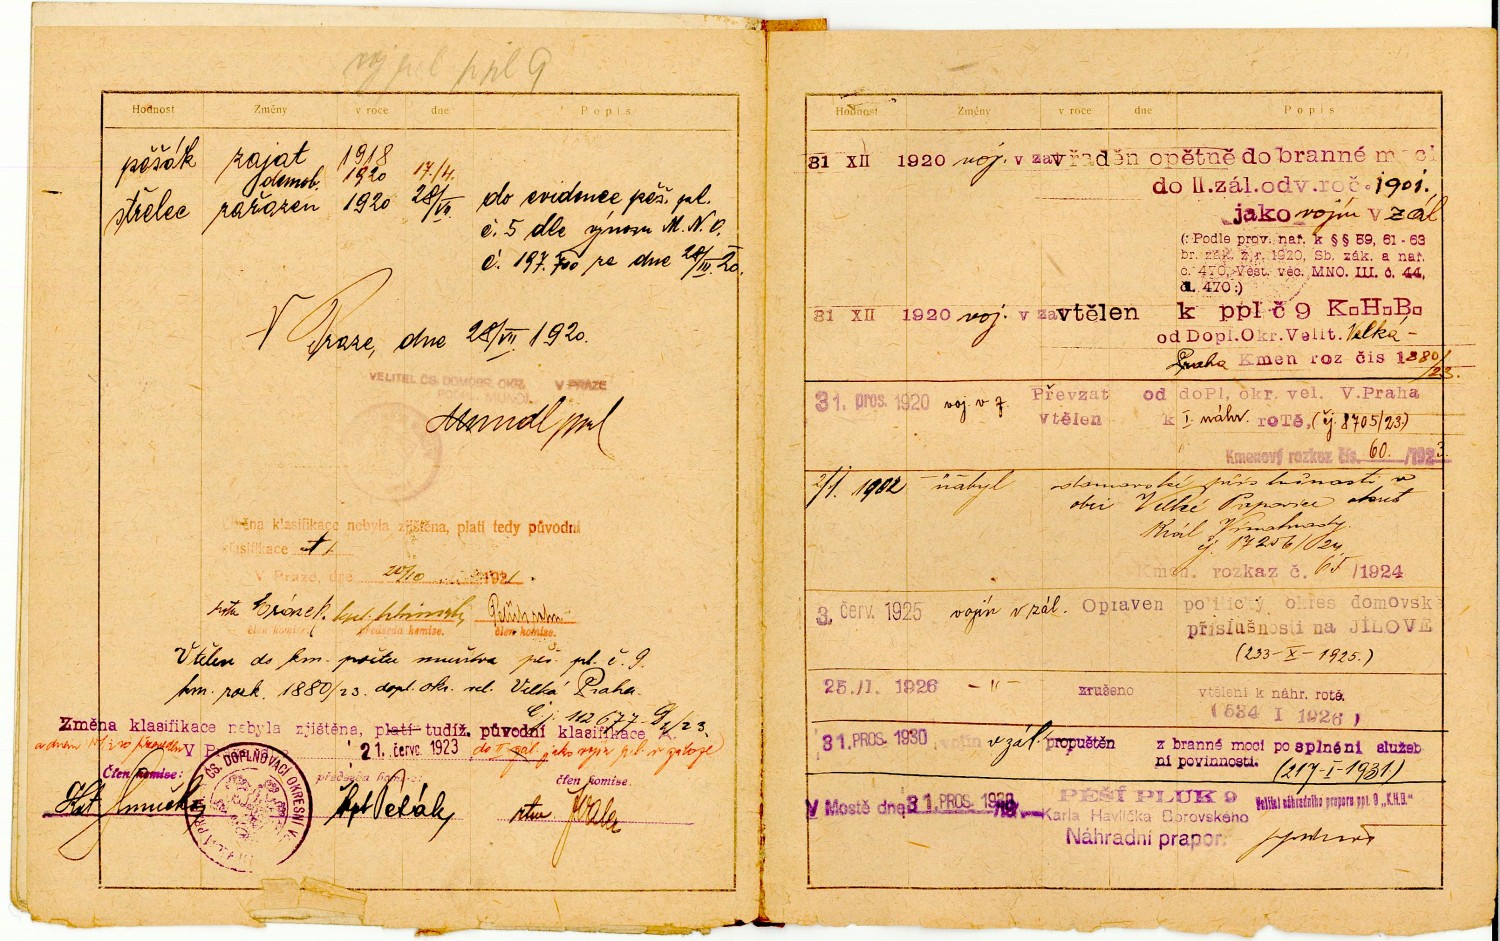 Hodnost Změny v roce dne Popis
pěšák zajat 1918
demob. 1920 17/4.
střelec zařazen 1920 28/VII. do evidence pěš. pl.
č. 5 dle výnosu M.N.O.
č. 197.700 ze dne 20.
V Praze, dne 28/VII 1920.
VELITEL ČS. DOMOBR. OKR. V PRAZE
MUNDL
Mundl ppl
Změna klasifikace nebyla zjištěna, platí tedy původní
klasifikace
V Praze, dne 20/10 1921.
člen komise. předseda komise. člen komise.
Vtělen do km. počtu mužstva pěš. pl. č. 9.
km. rozk. 1880/23. dopl. okr. vel. Velká Praha.
Č.j. 112677 /23.
Změna klasifikace nebyla zjištěna, platí tudíž původní klasifikace,
V P 21. červc. 1923 do zál. jako vojín
Člen komise: předseda komise: člen komise.
ČS. DOPLŇOVACÍ OKRESNÍ V
kpt Peták,
Hodnost Změny v roce dne Popis
31 XII 1920 voj. v zařaděn opětně do branné moci
do II. zál. odv. roč. 1901.
jako vojín v zál
(: Podle prov. nař. k §§ 59, 61-63
br. zák. z r. 1920, Sb. zák. a nař.
č. 470, Věst. věc. MNO. III. č. 44,
čl. 470 :)
31 XII 1920 voj. v za vtělen k ppl č 9 K.H.B.
od Dopl. Okr. Velit. Velká-
Praha Kmen roz čís 1880/23.
31. pros. 1920 voj. v z. Převzat od dopl. okr. vel. V. Praha
vtělen k I. náhr. rotě, (čj. 8705/23)
Kmenový rozkaz čís. 60. /1923.
2/1. 1902 nabyl domovské příslušnosti v
obci Velké Popovice okres
Král Vinohrady.
čj. 17256/24.
Kmen. rozkaz č. 65 /1924
3. červ. 1925 vojín v zál. Opraven politický okres domovsk
příslušnosti na JÍLOVÉ
(233-X-1925.)
25./I. 1926 -"- zrušeno vtělení k náhr. rotě.
(534 I 1926)
31. PROS. 1930 vojín v zál. propuštěn z branné moci po splnění služeb
ní povinnosti. (217-I-1931)
V Mostě dne 31. PROS. 1930 PĚŠÍ PLUK 9 Velitel náhradního praporu ppl. 9 „K.H.B."
Karla Havlíčka Borovského
Náhradní prapor.